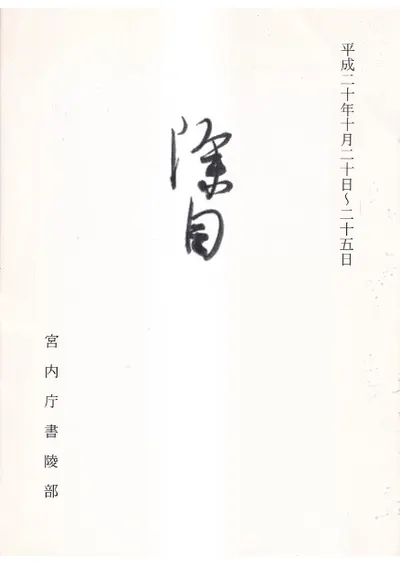 平成二十年十月二十日〜二十五日
除目
宮内庁書陵部